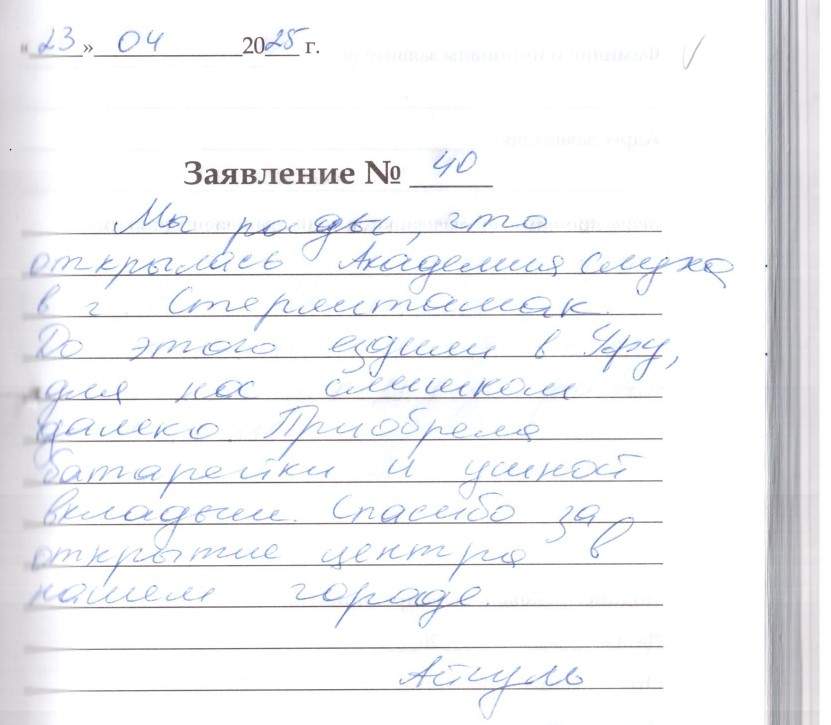 «23» 04 2025 г.
Заявление № 40
Мы рады, что
открылась Академия слуха
в г. Стерлитамак.
До этого ездили в Уфу,
для нас слишком
далеко. Приобрела
батарейки и ушной
вкладыш. Спасибо за
открытие центра в
нашем городе.
Айгуль